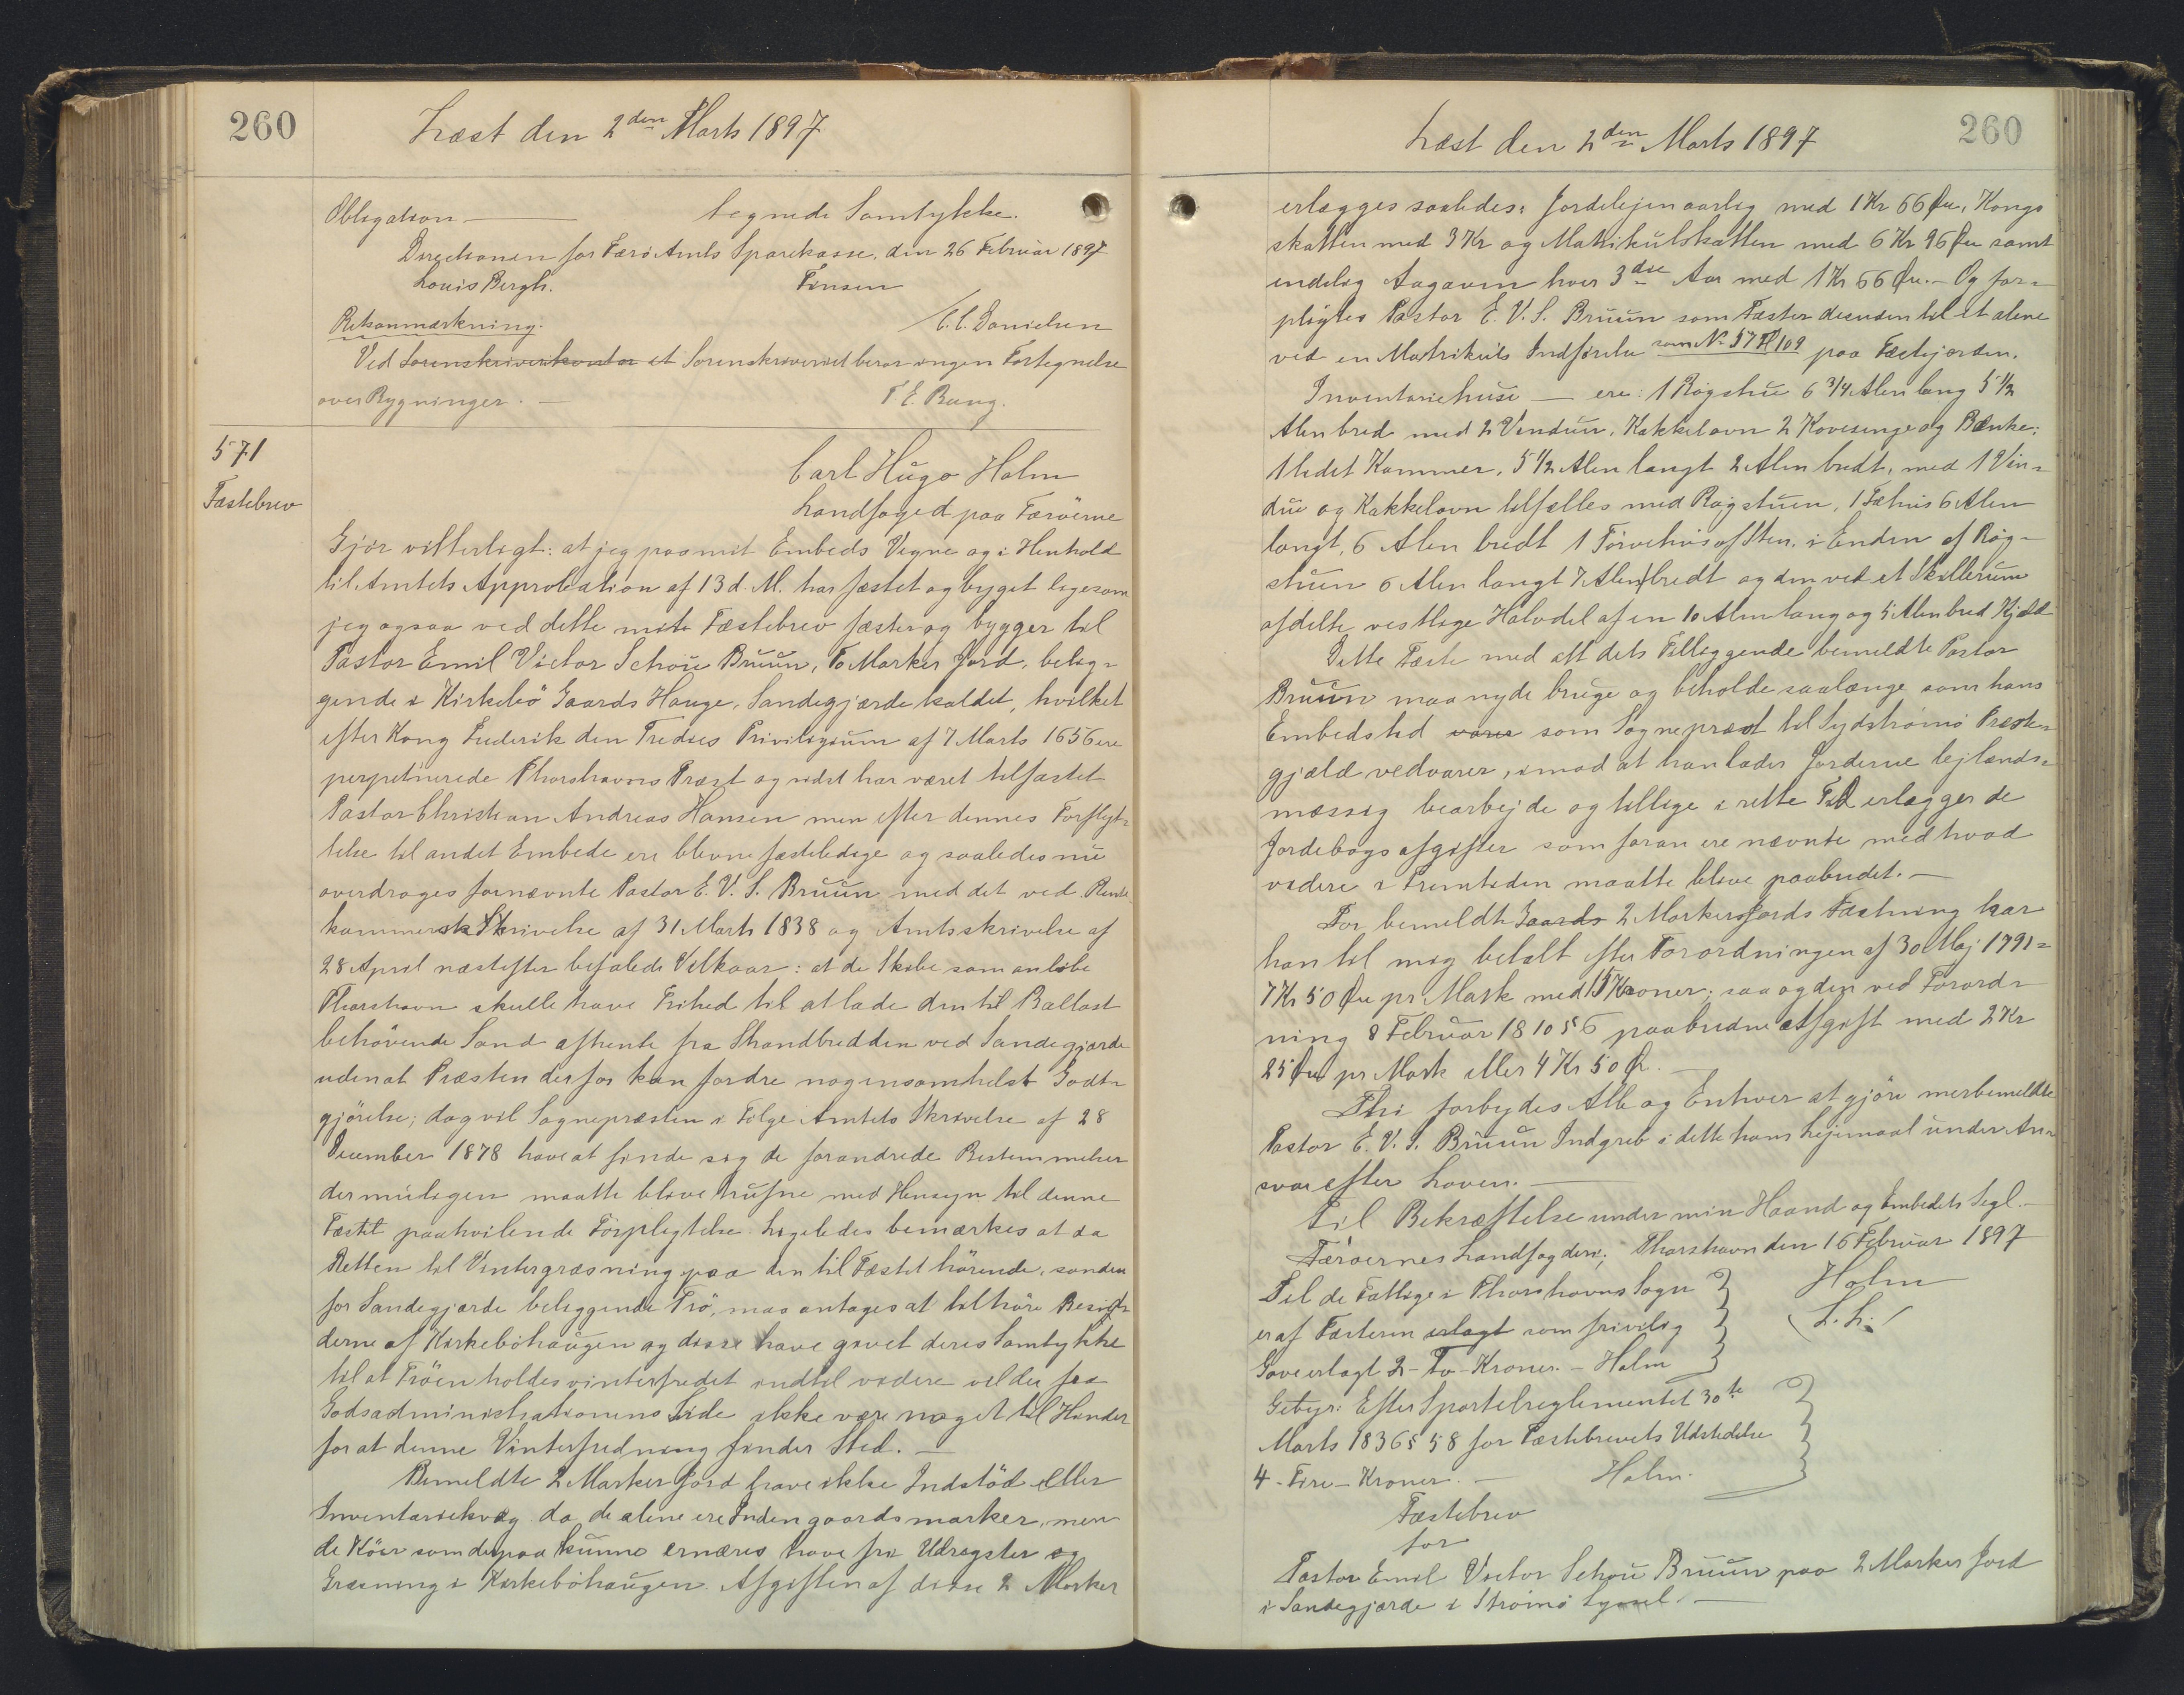 260
Læst den 2den Marts 1897
Obligation — tegnede Samtykke.
Directionen for Færö Amts Sparekasse, den 26 Februar 1897
Louis Bergh. Finsen
Retsanmærkning. C. C. Danielsen
Ved Sorenskriverkontoret Sorenskriveriet beror ingen Fortegnelse
over Bygninger. — F E. Bang.
571
Fæstebrev
Carl Hugo Holm
Landfoged paa Færöerne
Gjör vitterligt: at jeg paa mit Embeds Vegne og i Henhold
til Amtets Approbation af 13 d. M. har fæstet og bygget ligesom
jeg ogsaa ved dette mit Fæstebrev fæster og bygger til
Pastor Emil Victor Schou Bruun, To Marker Jord, belig-
gende i Kirkebö Gaards Hauge, Sandegjærde kaldet, hvilket
efter Kong Frederik den Tredies Privilegium af 7 Marts 1656 ere
perpetuerede Thorshavns Præst og sidst har været tilfæstet
Pastor Christian Andreas Hansen men efter dennes Forflyt-
telse til andet Embede ere blevne fæsteledige og saaledes nu
overdrages fornævnte Pastor E. V. S. Bruun med det ved Rente-
kammersk Skrivelse af 31 Marts 1838 og Amtsskrivelse af
28 April næstefter befalede Vilkaar: at de Skibe som anlöbe
Thorshavn skulle have Frihed til at lade den til Ballast
behövende Sand afhente fra Strandbredden ved Sandegjærde
uden at Præsten derfor kan fordre nogensomhelst Godt-
gjörelse; dog vil Sognepræsten i Fölge Amtets Skrivelse af 28
December 1878 have at finde sig de forandrede Bestemmelser
der muligen maatte blive trufne med Hensyn til denne
Fæstet paahvilende Forpligtelse. Ligeledes bemærkes at da
Retten til Vintergræsning paa den til Fæstet hörende, sönden
for Sandegjærde beliggende Trö, maa antages at tilhöre Besid-
derne af Kirkeböhaugen og disse have givet deres Samtykke
til at Tröen holdes vinterfredet indtil videre vil der fra
Godsadministrationens Side ikke være noget til Hinder
for at denne Vinterfredning finder Sted. —
Bemeldte 2 Marker Jord have ikke Indstöd eller
Inventariekvæg da de alene ere Indengaardsmarker, men
de Köer som derpaa kunne ernæres have fri Udregster og
Græsning i Kirkeböhaugen. Afgiften af disse 2 Marker
260
Læst den 2den Marts 1897
erlægges saaledes: Jordelejen aarlig med 1 Kr 66 Øre, Kongs
skatten med 3 Kr og Matrikulskatten med 6 Kr 96 Øre samt
endelig Aagaven hver 3die Aar med 1 Kr 66 Øre. — Og for-
pligtes Pastor E. V. S. Bruun som Fæster desuden til et alene
ved en Matrikuls Indförelse som No 57 109 paa Fæstejorden.
Inventariehuse — ere: 1 Rögstue 6 3/4 Alen lang 5 1/2
Alen bred med 2 Vinduer, Kakkelovn 2 Kovesenge og Bænke;
1 lidet Kammer, 5 1/2 Alen langt 2 Alen bredt, med 1 Vin-
due og Kakkelovn tilfælles med Rögstuen, 1 Fæhus 6 Alen
langt, 6 Alen bredt 1 Törvehus af Sten, i Enden af Rög-
stuen 6 Alen langt 7 Alen bredt og den ved et Skillerum
afdelte vestlige Halvdel af en 10 Alen lang og 5 Alen bred Hjæld
Dette Fæste med alt dets Tilliggende bemeldte Pastor
Bruun maa nyde bruge og beholde saalænge som hans
Embedstid varer som Sognepræst til Sydströmö Præste-
gjæld vedvarer, imod at han lader Jorderne lejlænds-
mæssig bearbejde og tillige i rette Tid erlægger de
Jordebogsafgifter som foran ere nævnte med hvad
videre i Fremtiden maatte blive paabudet. —
For bemeldte Gaards 2 Markers Jords Fæstning har
han til mig betalt efter Forordningen af 30 Maj 1791 =
7 Kr 50 Øre pr Mark med 15 Kroner; saa og den ved Forord-
ning 8 Februar 1810 § 6 paabudne Afgift med 2 Kr
25 Øre pr Mark eller 4 Kr 50 Ø. —
Thi forbydes Alle og Enhver at gjöre merbemeldte
Pastor E. V. S. Bruun Indgreb i dette hans Lejemaal under An-
svar efter Loven. —
Til Bekræftelse under min Haand og Embedets Segl. —
Færöernes Landfogderi; Thorshavn den 16 Februar 1897
Til de Fattige i Thorshavns Sogn Holm
er af Fæsteren erlagt som frivilig (L. S.)
Gave erlagt 2 - To - Kroner. — Holm
Gebyr: Efter Sportelreglementet 30te
Marts 1836 § 58 for Fæstebrevets Udstedelse
4 - Fire - Kroner. — Holm.
Fæstebrev
for
Pastor Emil Victor Schou Bruun paa 2 Marker Jord
i Sandegjærde i Strömö Syssel. —